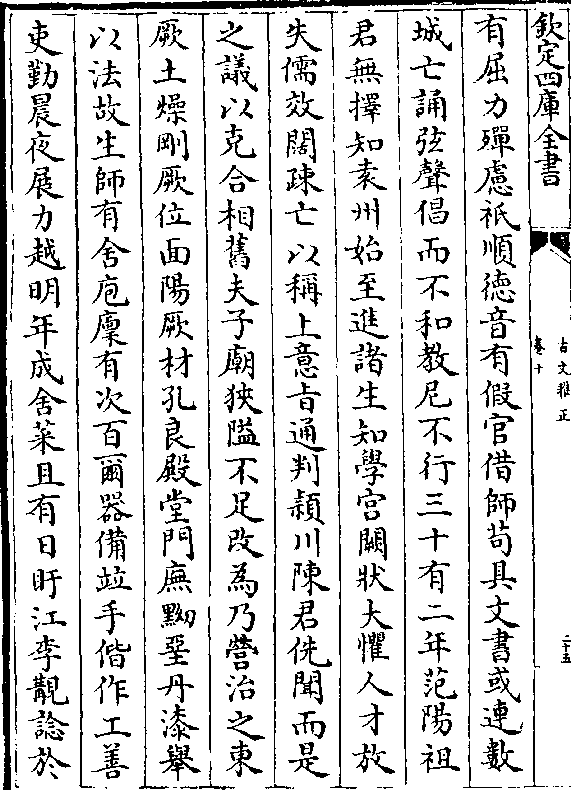 欽定四庫全書
古文雅正
卷十
二十五
有屈力殫慮祗順德音有假官借師苟具文書或連數
城亡誦弦聲倡而不和教尼不行三十有二年范陽祖
君無擇知袁州始至進諸生知學宮闕狀大懼人才放
失儒效闊疎亡以稱上意㫖通判潁川陳君侁聞而是
之議以克合相舊夫子廟狹隘不足改為乃營治之東
厥土燥剛厥位面陽厥材孔良殿堂門廡黝堊丹漆舉
以法故生師有舍庖廩有次百爾器備竝手偕作工善
吏勤晨夜展力越明年成舍菜且有日盱江李覯諗於